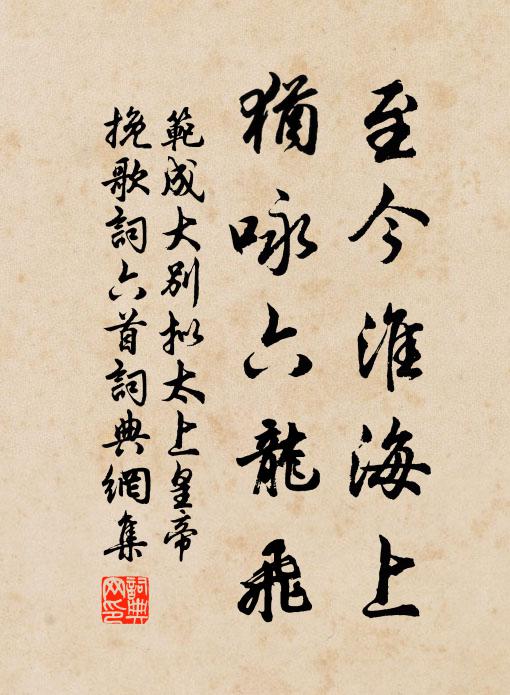 至今淮海上
猶咏六龍飛
範成大別拟太上皇帝
挽歌詞六首詞典網集
詞典
网印